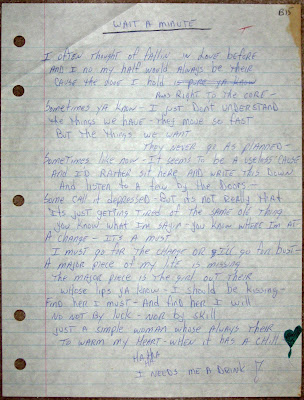 B15
WAIT A MINUTE
I often thought of fallin in love before
And I no my half would always be their
Cause the love I hold is pure ya know
And Right to the core -
Sometimes ya know - I just dont understand
the things we have - they move so fast
But the things we want
They never go as planed -
Sometimes like now - It seems to be a useless cause
And I'd Rather sit here and write this down
And listen to a few by the Doors -
Some call it depressed - But its not really that
Its just getting tired of the same old thing
you know what I'm sayin - you know where I'm at
A change - its a must
I must go for the change or I'll go for bust
A major piece of my life is missing
the major piece is the girl out their
whose lips ya know - I should be kissing -
Find her I must - And find her I will
No not by luck - nor by skill
Just a simple woman whose always their
to warm my heart - when it has a chill
HA HA HA
I needs me a drink